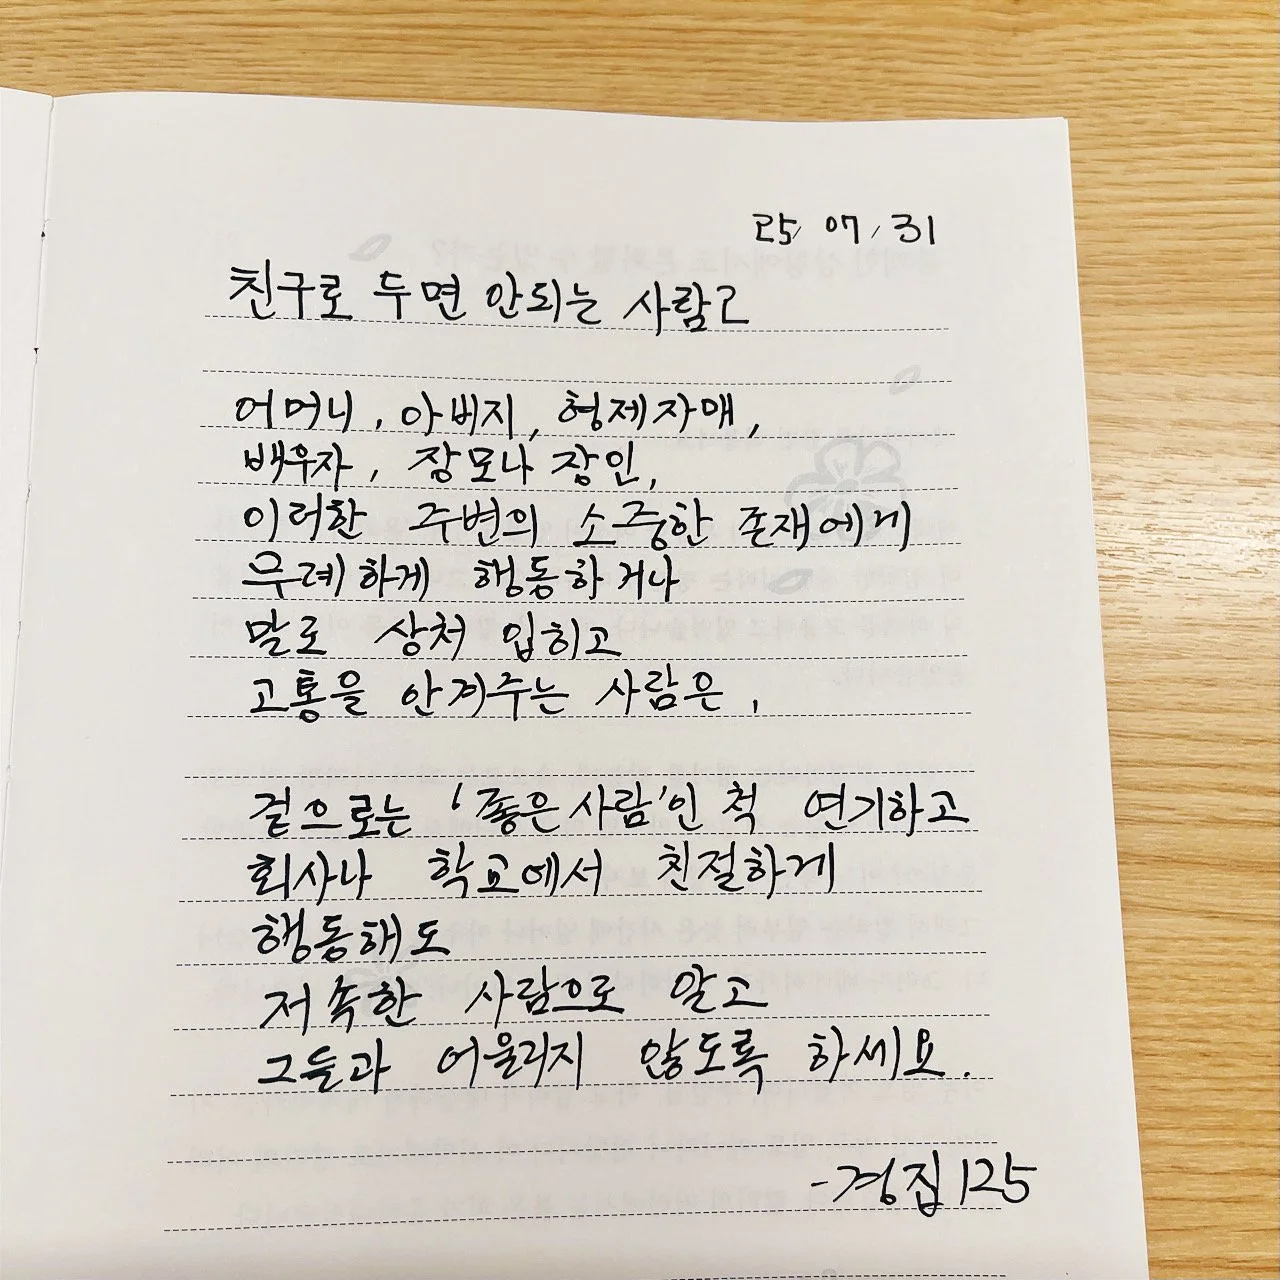 25. 07. 31
친구로 두면 안되는 사람2
어머니, 아버지, 형제자매,
배우자, 장모나 장인,
이러한 주변의 소중한 존재에게
무례하게 행동하거나
말로 상처 입히고
고통을 안겨주는 사람은,
겉으로는 '좋은사람'인 척 연기하고
회사나 학교에서 친절하게
행동해도
저속한 사람으로 알고
그들과 어울리지 않도록 하세요.
-경집125